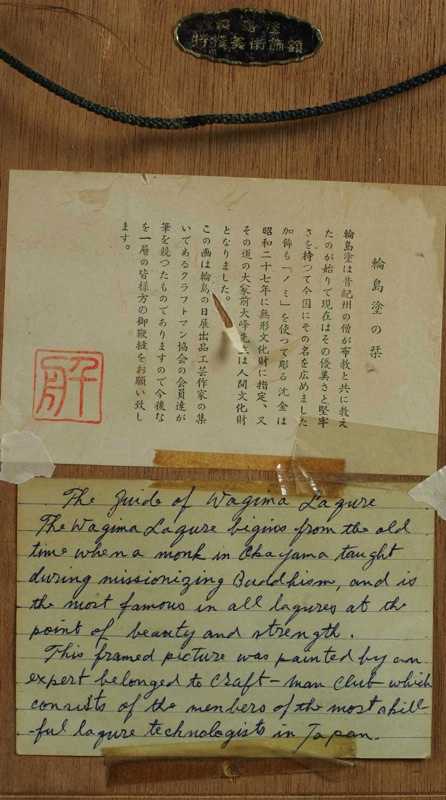 輪島塗
特撰美術飾額
輪島塗の栞
輪島塗は昔紀州の僧が布教と共に教え
たのが始りで現在はその優美さと堅牢
さを持つて全国にその名を広めました
加飾も「ノミ」を使つて彫る沈金は
昭和二十七年に無形文化財に指定、又
その道の大家前大峰先生は人間文化財
となりました。
この画は輪島の日展出品工芸作家の集
いであるクラフトマン協会の会員達が
筆を競つたものでありますので今後な
を一層の皆様方の御鞭撻をお願い致し
ます。
The Guide of Wagima Lazure
The Wagima Lazure begins from the old
time when a monk in Okayama taught
during missionizing Buddhism, and is
the most famous in all lagures at the
point of beauty and strength.
This framed picture was painted by an
expert belonged to Craft-man Club which
consists of the menbers of the most skill-
-ful lagure technologists in Japan.